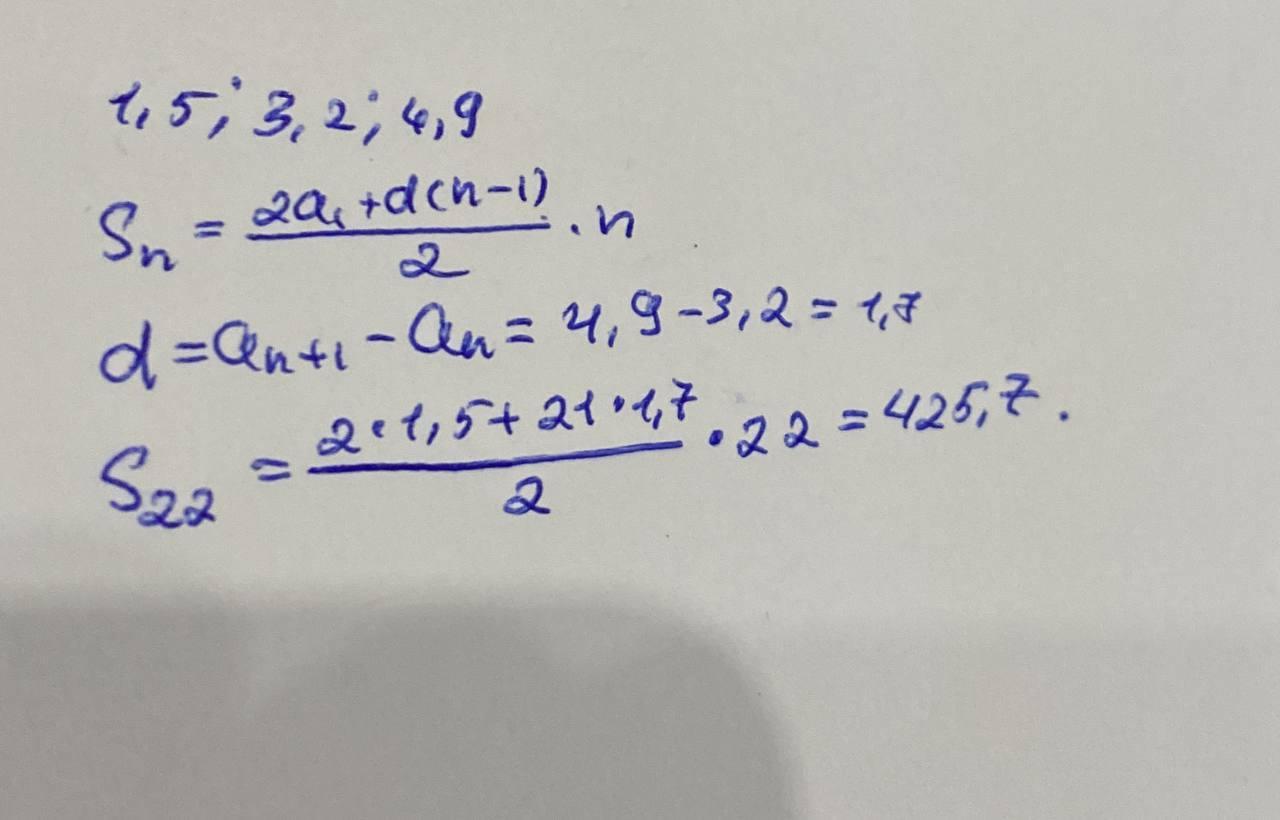 1,5; 3,2; 4,9
Sn = (2a₁+d(n-1))/2 · n
d = aₙ₊₁ - aₙ = 4,9-3,2 = 1,7
S₂₂ = (2·1,5+21·1,7)/2 · 22 = 425,7.